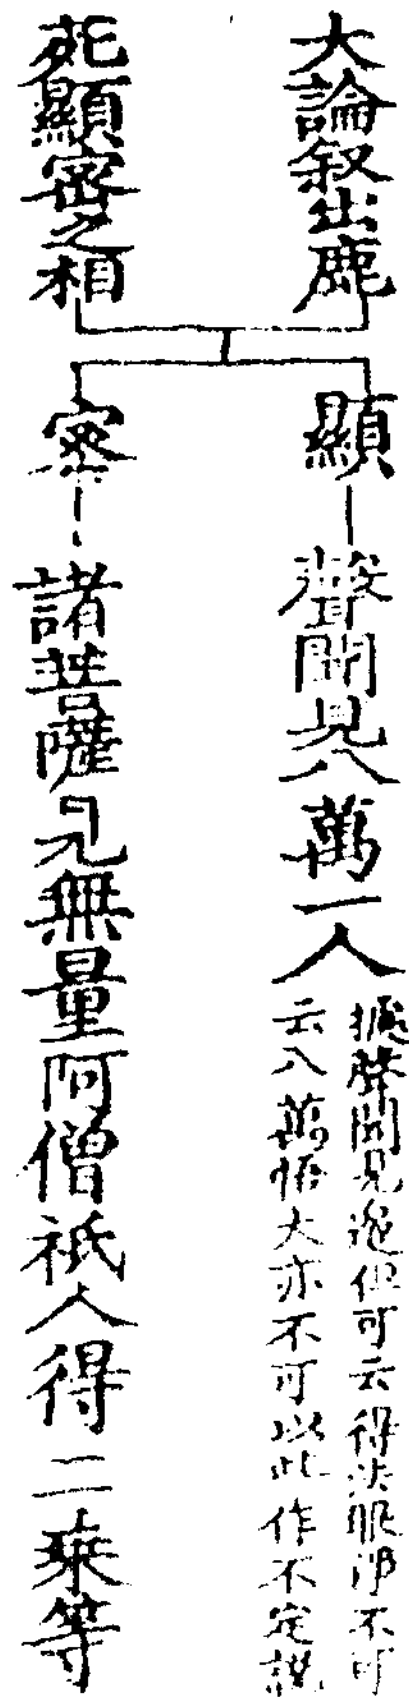 大論叙出鹿
苑顯密之相
顯
聲聞見八萬一人
據聲聞見邊但可云得法眼淨不可
云八萬悟大亦不可以此作不定說
密
諸菩薩見無量阿僧祇人得二乘等